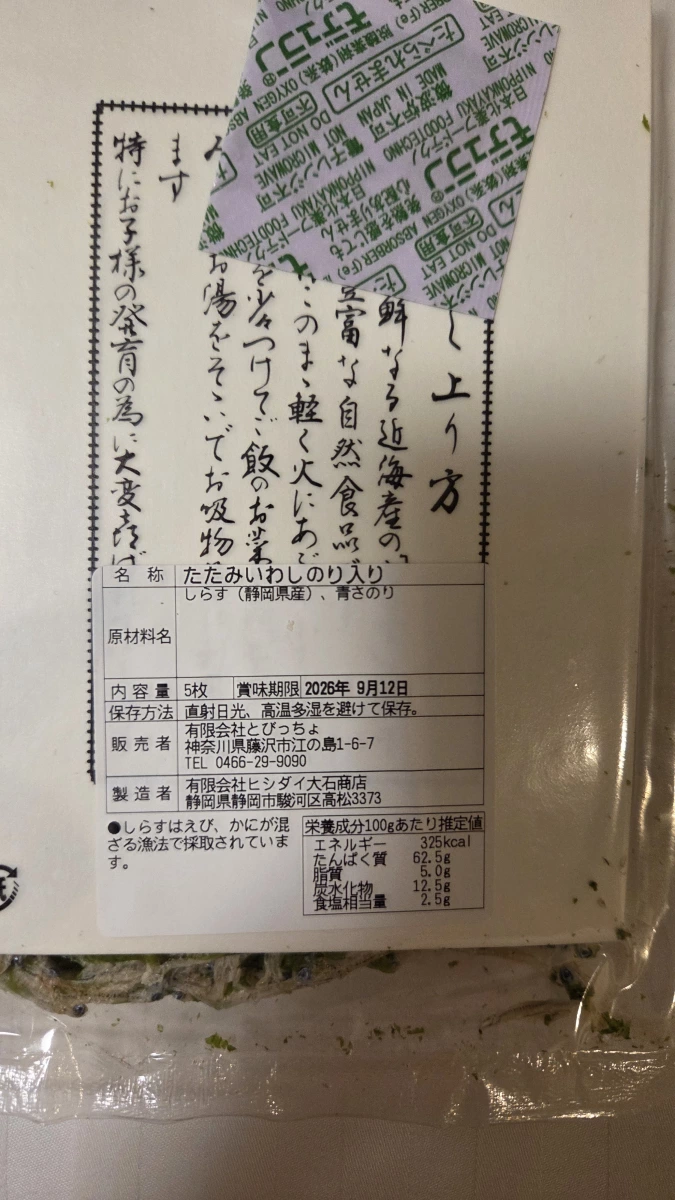 モデュラン®
脱酸素剤(鉄系) OXYGEN ABSORBER(Fe)
たべられません
不可食用
DO NOT EAT
MADE IN JAPAN
微波炉不可
電子レンジ不可
NOT MICROWAVE
日本化薬フードテクノ
NIPPONKAYAKU FOODTECHNO
発熱を感じても
心配ありません
し上り方
鮮なる近海産の
豊富な自然食品
このまゝ軽く火にあ
を少々つけてご飯のお菜
お湯をそゝいでお吸物
ます
特にお子様の発育の為に大変喜ば
名称 たたみいわしのり入り
原材料名 しらす(静岡県産)、青さのり
内容量 5枚 賞味期限 2026年 9月12日
保存方法 直射日光、高温多湿を避けて保存。
販売者 有限会社とびっちょ
神奈川県藤沢市江の島1-6-7
TEL 0466-29-9090
製造者 有限会社ヒシダイ大石商店
静岡県静岡市駿河区高松3373
●しらすはえび、かにが混
ざる漁法で採取されていま
す。
栄養成分100gあたり推定値
エネルギー 325kcal
たんぱく質 62.5g
脂質 5.0g
炭水化物 12.5g
食塩相当量 2.5g